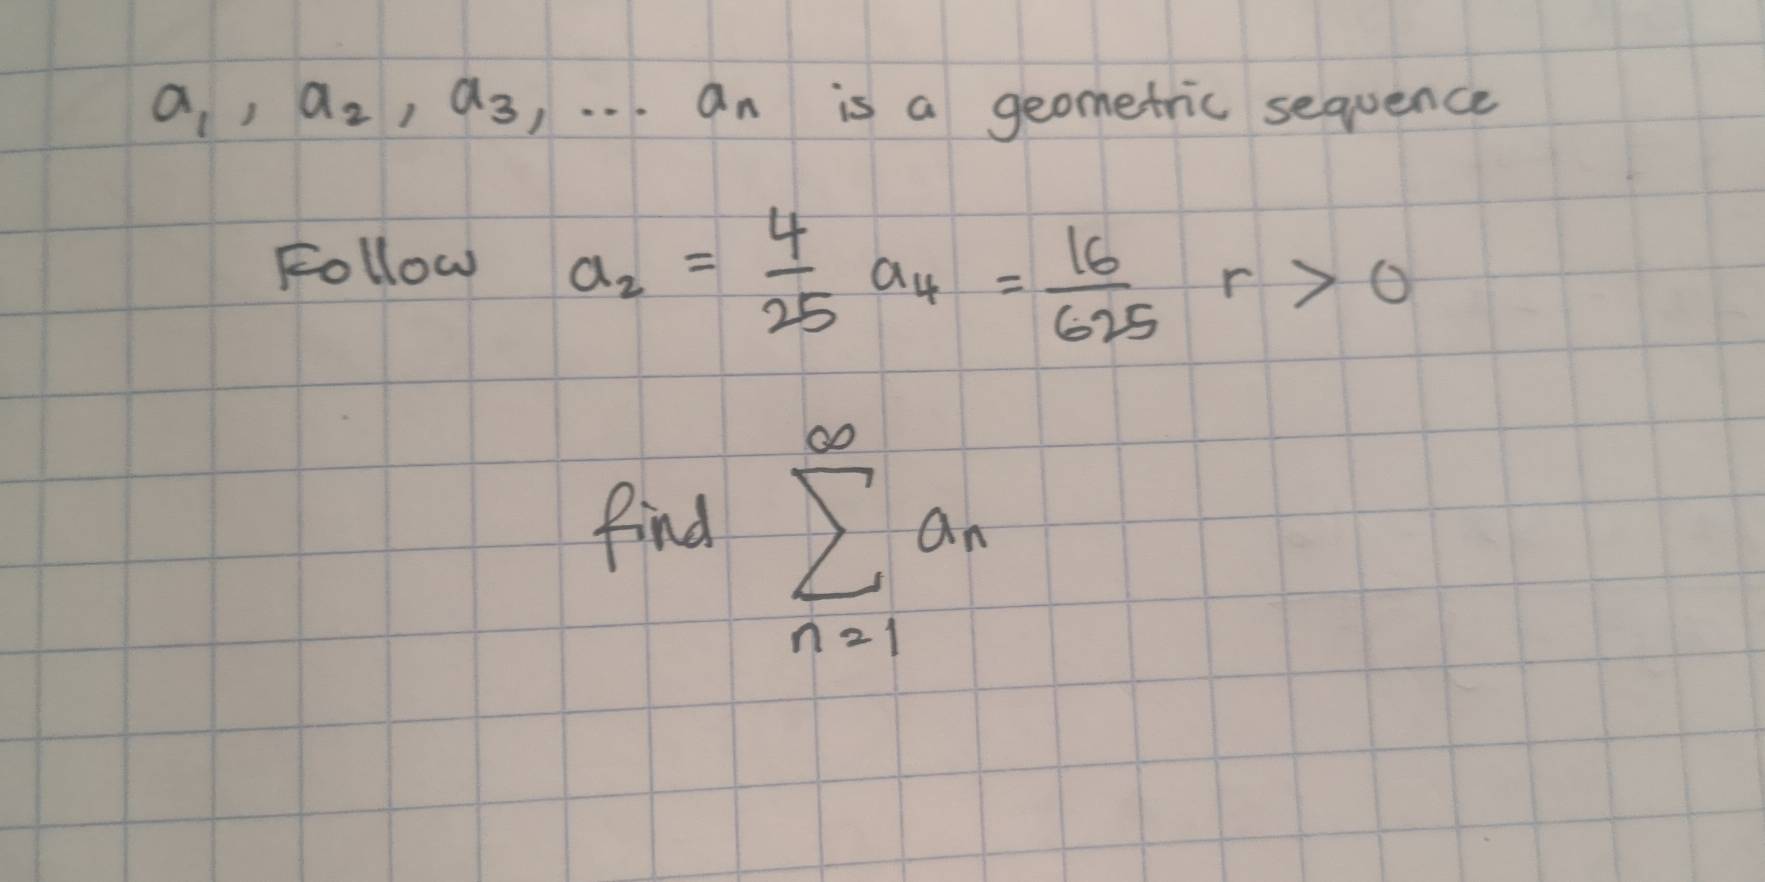 a₁, a₂, a₃, ... aₙ is a geometric sequence
Follow a₂ = 4/25 a₄ = 16/625 r > 0
find ∑_{n=1}^{∞} aₙ